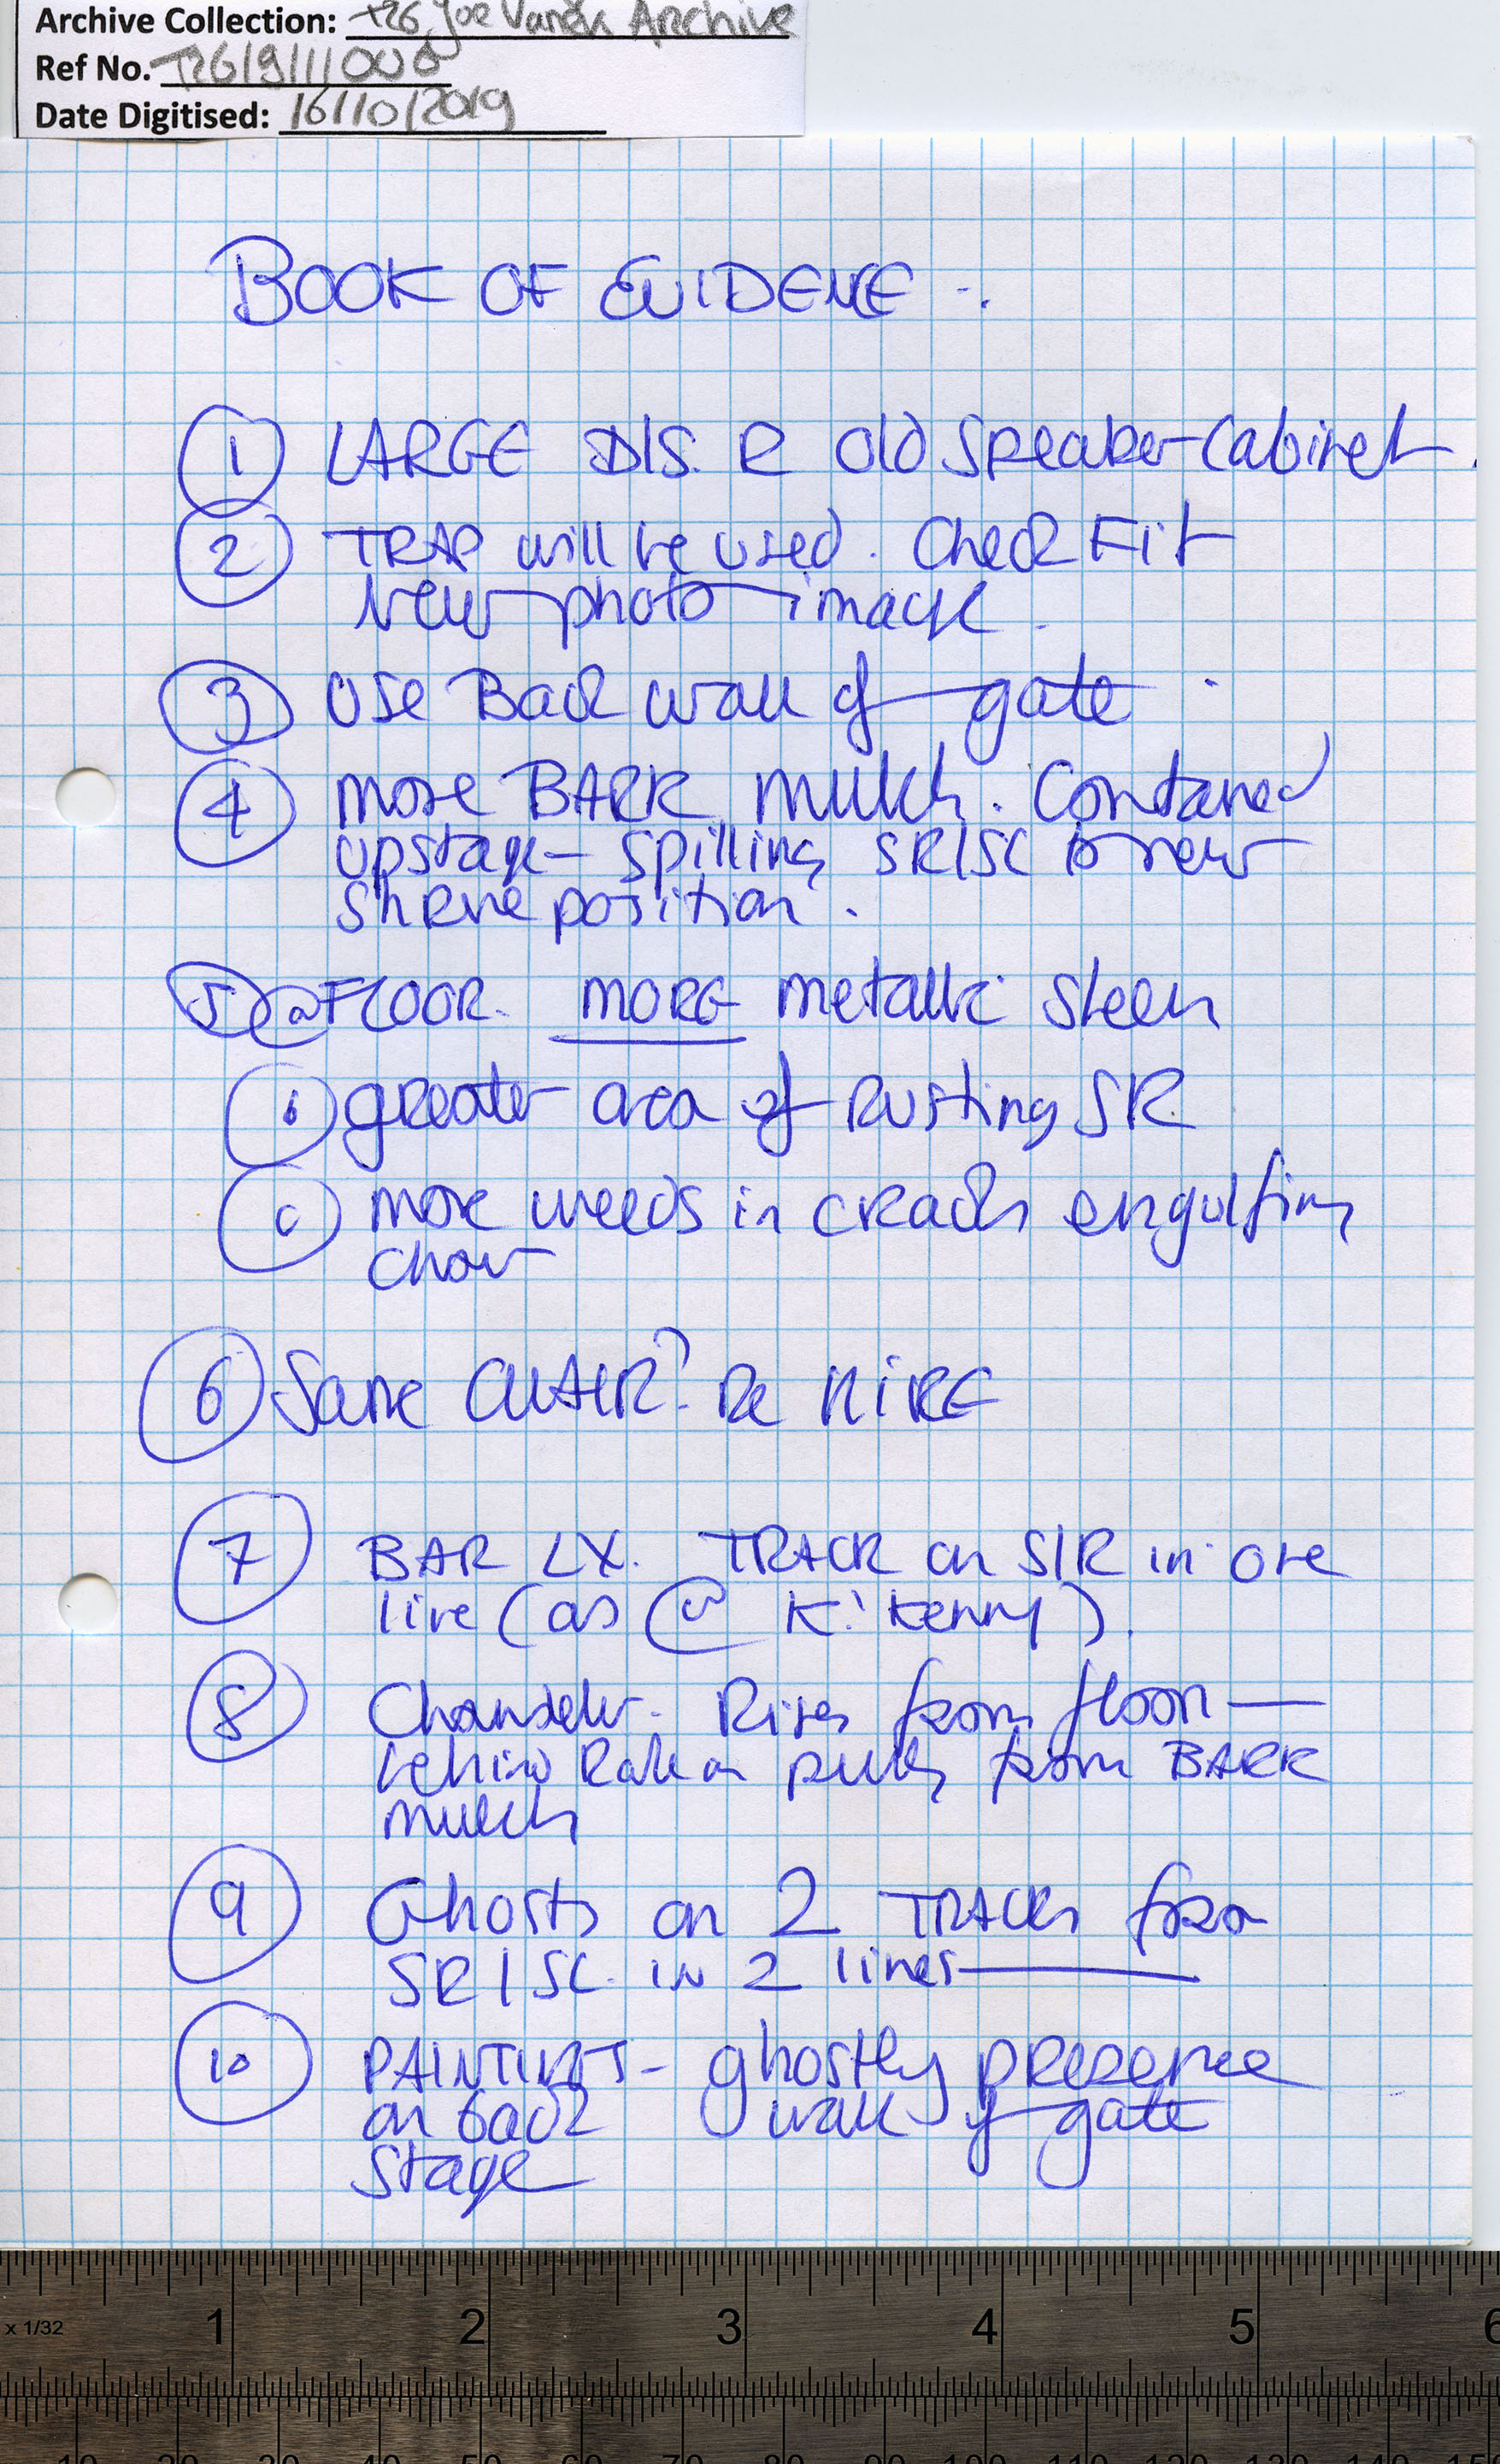 Archive Collection: T26 Joe Vaněk Archive
Ref No. T26/9/11/008
Date Digitised: 16/10/2019
BOOK OF EVIDENCE -.
1 LARGE D/S. R Old Speaker Cabinet.
2 TRAP will be used. Check Fit
New photo image.
3 Use Back wall of gate.
4 more BARK mulch. Contained
upstage - spilling SR/SL to new
shrine position.
5 a FLOOR. MORE metallic sheen
b greater area of Rusting SR.
c more weeds in cracks engulfing
chair
6 Same CHAIR? Re HIRE
7 BAR LX. TRACK on S/R in one
line (as @ K'Kenny).
8 Chandelier. Rises from floor —
behind Rake on pulley from BARK
mulch
9 Ghosts on 2 TRACKS from
SR/SL in 2 lines
10 PAINTINGS - ghostly presence
on back wall of gate
Stage
x 1/32 1 2 3 4 5 6
10 20 30 40 50 60 70 80 90 100 110 120 130 140 150